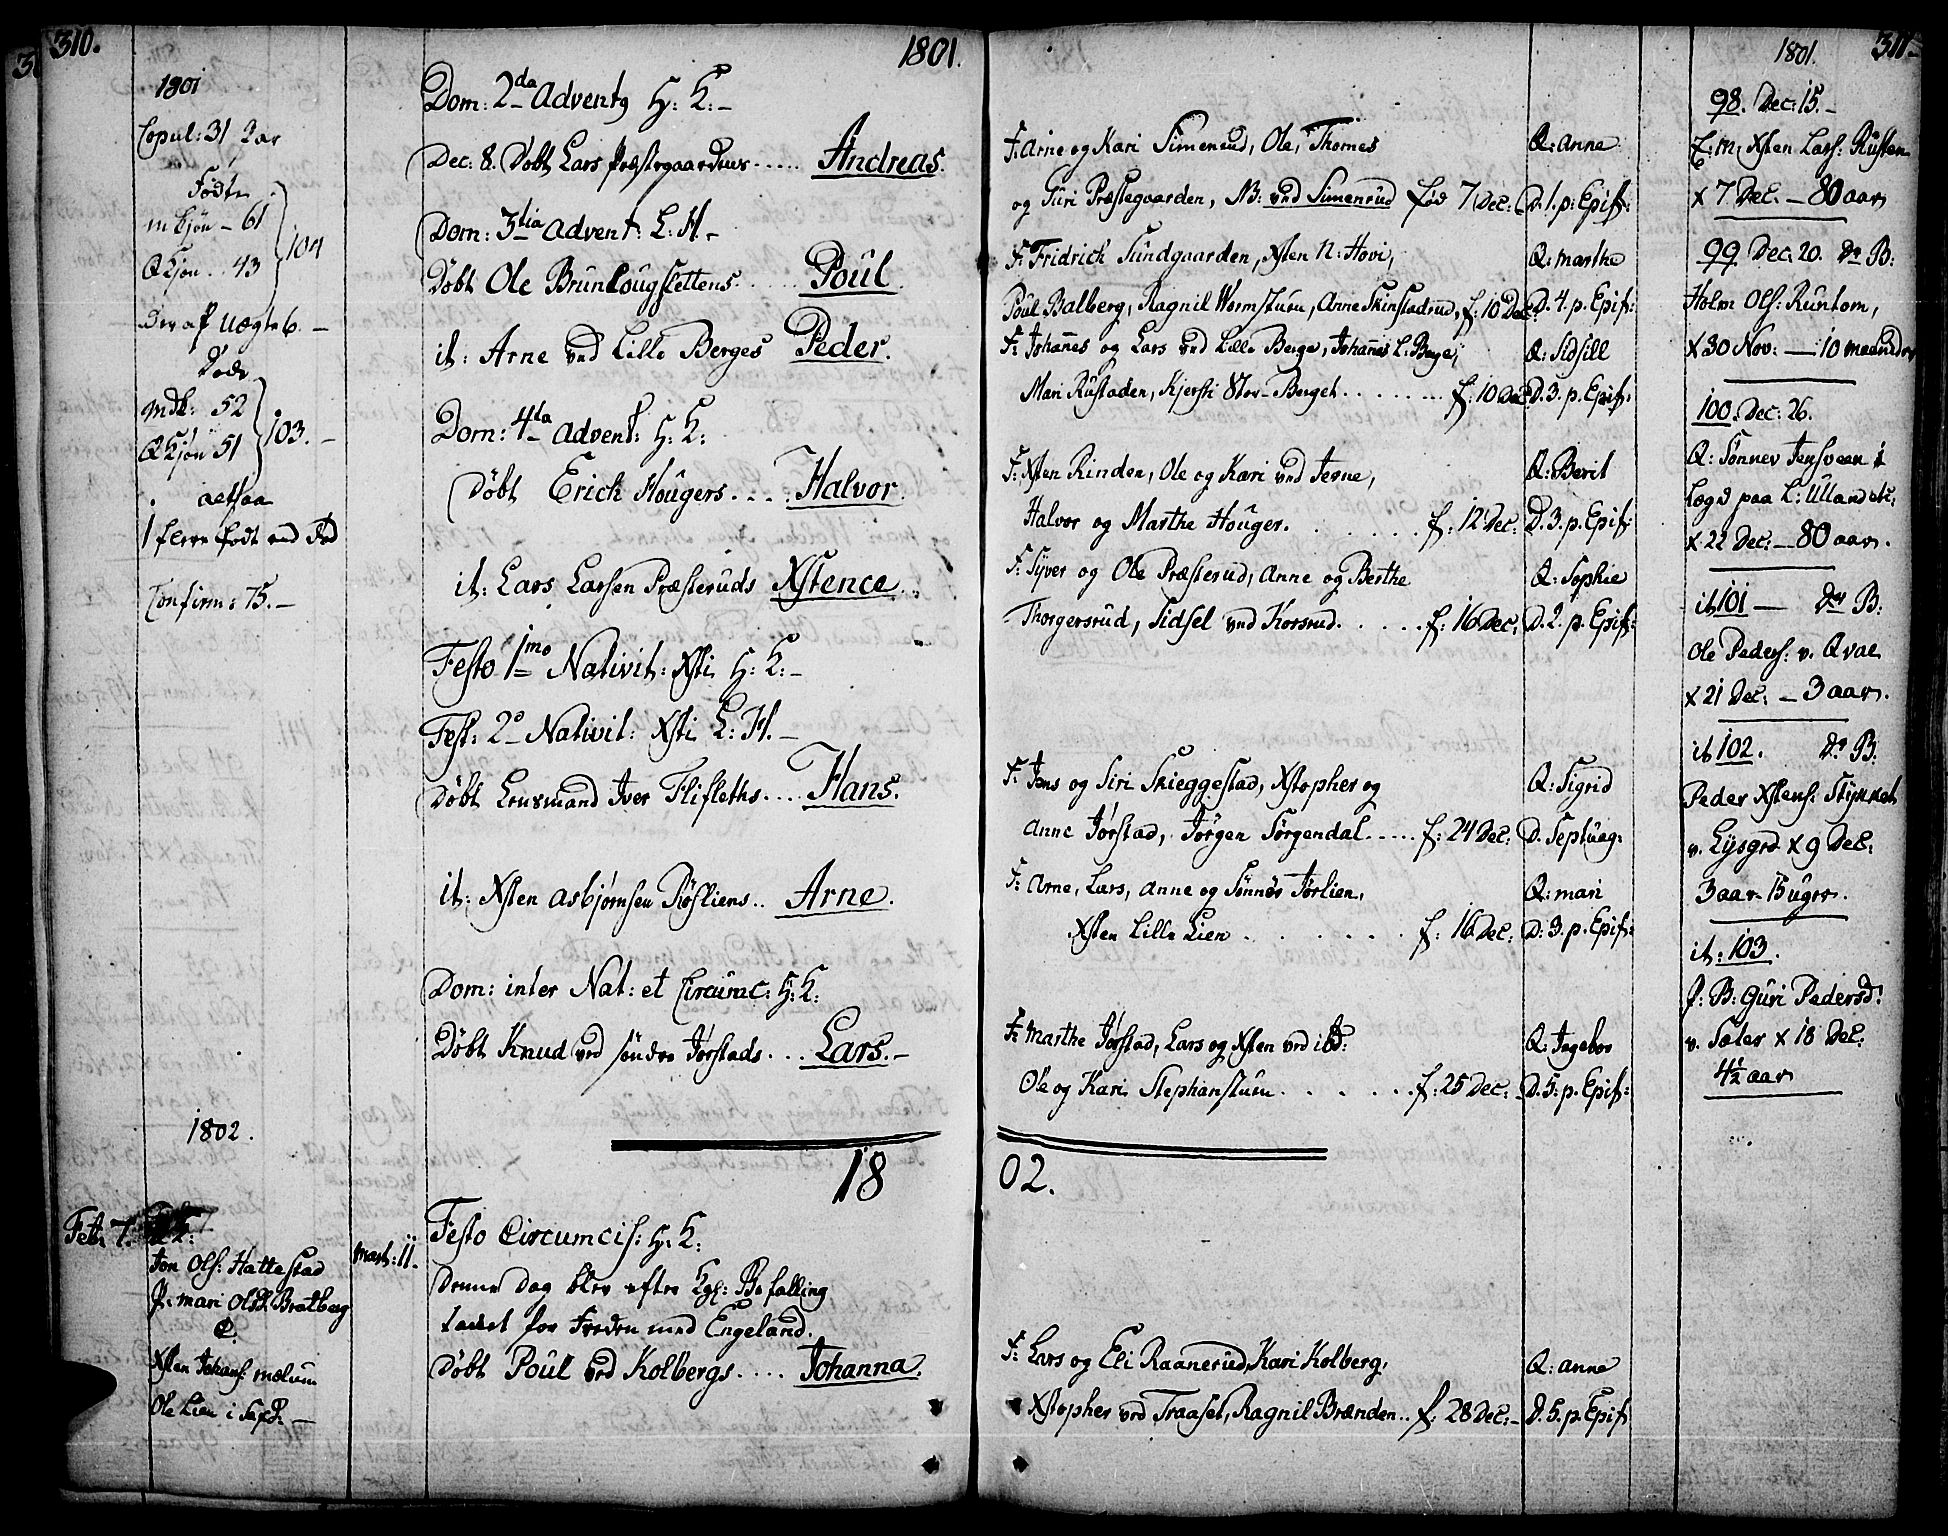 310.
1801.
1801
Copul: 31 Par
Fødte
m Kjøn – 61
Q Kjøn .. 43
104
Deraf Uægte 6. –
Døde
Mdk: 52
Q Kjøn 51
103. –
1 flere født end
Confirm: 75. –
1802.
Feb: 7.
Jon Ols: Hattestad
P: mari Olsd. Bratberg
C:
Xsten Johans: mælum
Ole Lien i
Mart: 11.
Dom: 2da Advent9 H: K: –
Dec: 8. Døbt Lars Præstegaardens ..... Andreas.
Dom: 3tia Advent: L: H. –
Døbt Ole Brunlougslettens ..... Poul.
it: Arne ved Lille Berges Peder.
Dom: 4ta Advent: H: K:
Døbt Erich Hougers .... Halvor.
it: Lars Larsen Præsteruds Xstence ..
Festo 1mo Nativit: Xsti H: K: –
Fest: 2o Nativit: Xsti L: H. –
Døbt Lensmand Iver Flifleths .... Hans.
it: Xsten Asbjørnsen Røsliens .. Arne.
Dom: inter Nat: et Circumc: H: K:
Døbt Knud ved søndre Jørstads ... Lars. –
18
Festo Circumcis: H: K:
Denne Dag blev efter Kgl: Befalling
takket for Freden med Engeland.
Døbt Poul ved Kolbergs .... Johanna.
1801.
311.
F: Arne og Kari Simenrud, Ole, Thomes
og Guri Præstegaarden, NB: ved Simenrud fød 7 Dec:
Q: Anne
D. 1. p: Epif:
F: Fridrich Sundgaarden, Xsten N: Hovi,
Poul Balberg, Ragnil Wormstuen, Anne Skinstadrud, f: 10 Dec:
Q: Marthe
D. 4. p. Epif:
F: Johannes og Lars ved Lille Berge, Johannes L: Berge,
Mari Rustaden, Kjersti Stor-Berget ........ f: 10 Dec:
Q: Sidsill
D. 3. p. Epif:
F: Xsten Rinden, Ole og Kari ved Jevne,
Halvor og Marthe Houger. ..... f: 12 Dec:
Q: Berit
D. 3. p. Epif:
F: Syver og Ole Præsterud, Anne og Berthe
Thorgersrud, Sidsel ved Korsrud. ..... f: 16 Dec:
Q: Sophie
D. 2. p. Epif:
F: Jens og Siri Skieggestad, Xstopher og
Anne Jørstad, Jørgen Sørgendal ..... f: 24 Dec:
Q: Sigrid
D. Septuag:
F: Arne, Lars, Anne og Sønnev Jørlien,
Xsten Lille Lien ..... f: 16 Dec:
Q: mari
D: 3. p. Epif:
F: Marthe Jørstad, Lars og Xsten ved ibd:
Ole og Kari Stephanstuen ..... f: 25 Dec:
Q: Ingebor
D. 5: p. Epif:
02.
F: Lars og Eli Raanerud, Kari Kolberg,
Xstopher ved Traaset, Ragnil Brænden .. f: 28 Dec: –
Q: Anne
D. 5. p. Epif
98. Dec: 15. –
E: m, Xsten Lars: Rusten
X 7 Dec. – 80 aar
99 Dec: 20. Do B:
Holm Ols: Runtom,
X 30 Nov: – 10 maaneder
100. Dec: 26.
Q: Sønnev Jensveen i
Lægd paa L: Ullandet.
X 22 Dec: – 80 aar.
it 101 – Do B:
Ole Peders: v. Qvæ
X 21 Dec: – 3 aar.
it 102. Do B:
Peder Xstens: Stykket
v. Lysgrd X 9 Dec:
3 aar 15 uger.
it: 103.
p: B: Guri Pedersd:
v. Sæter X 18 Dec:
4½ aar